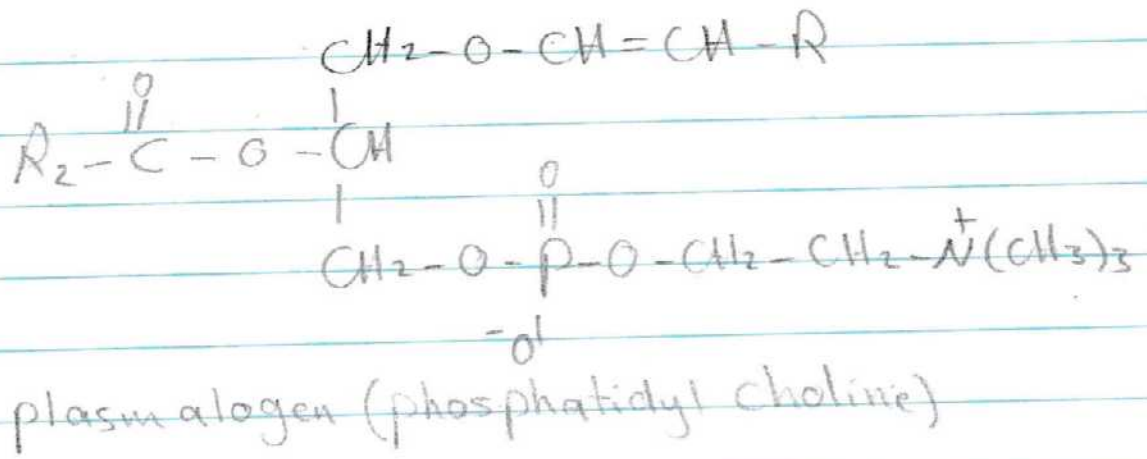 CH2-O-CH=CH-R
O
R2-C-O-CH
O
CH2-O-P-O-CH2-CH2-N+(CH3)3
-O
plasmalogen (phosphatidyl choline)